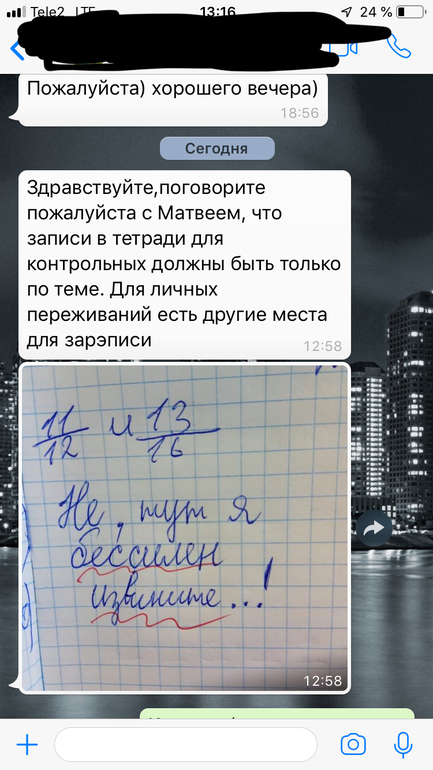 Tele2 LTE 13:16 24 %
Пожалуйста) хорошего вечера)
18:56
Сегодня
Здравствуйте,поговорите
пожалуйста с Матвеем, что
записи в тетради для
контрольных должны быть только
по теме. Для личных
переживаний есть другие места
для зарэписи
12:58
11/12 и 13/16
Не, тут я
бессилен
извините...!
12:58